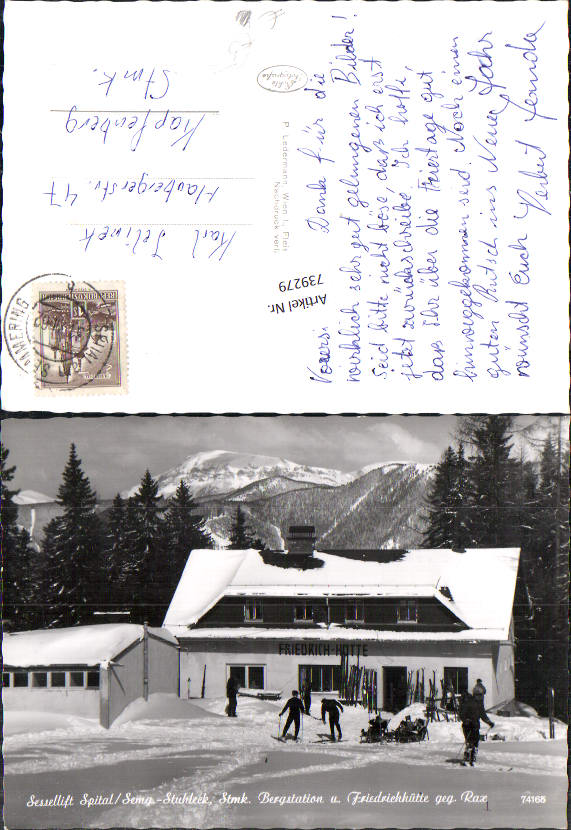 Voiers.
Dank f. ür die
wirklich sehr gut gelungenen Bilder!
Seid bitte nicht böse, daß ich erst
jetzt zurückschreibe. Ich hoffe,
daß Ihr über die Feiertage gut
hinweggekommen seid. Noch einen
guten Rutsch ins Neue Jahr
wünscht Euch Herbert
Artikel Nr.
739279
P. Ledermann, Wien I, Fleis
Nachdruck verb.
Karl
47
Kapfenberg
Stmk.
SEMMERING
FRIEDRICH-HÜTTE
Sessellift Spital/Semg.-Stuhleck, Stmk. Bergstation u. Friedrichhütte geg. Rax 74165